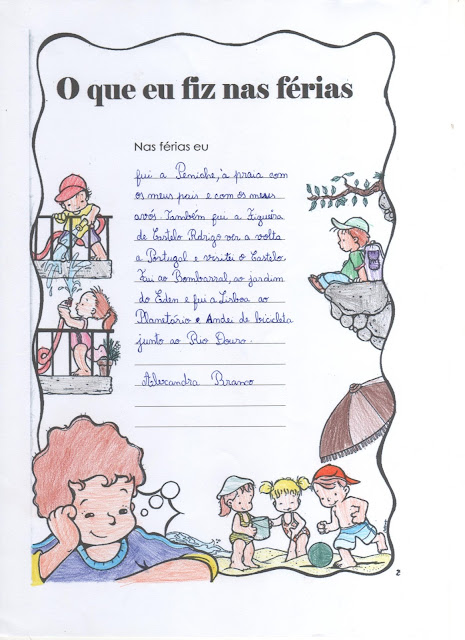 O que eu fiz nas férias
Nas férias eu
fui a Peniche, à praia com
os meus pais e com os meus
avós. Também fui a Figueira
de Castelo Rdrigo ver a volta
a Portugal e visitei o Castelo.
Fui ao Bombarral, ao jardim
do Éden e fui a Lisboa ao
Planetário e Andei de bicicleta
junto ao Rio Douro.
Alexandra Branco
2